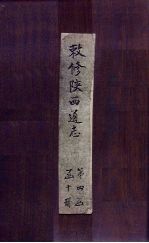 敕修陝西通志
第四函
函十冊